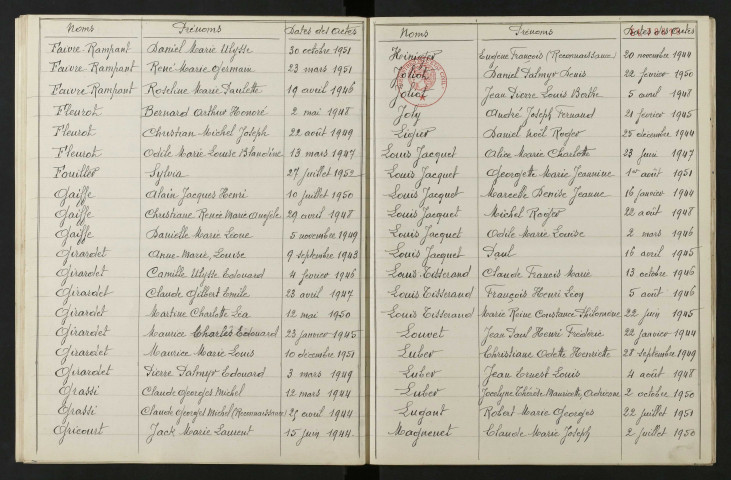 Noms Prénoms Dates des Actes
Faivre Rampant Daniel Marie Ulysse 30 octobre 1951
Faivre Rampant René Marie Germain 23 mars 1951
Faivre Rampant Roseline Marie Paulette 19 avril 1946
Fleurot Bernard Arthur Honoré 2 mai 1948
Fleurot Christian Michel Joseph 22 août 1949
Fleurot Odile Marie Louise Blandine 13 mars 1947
Fouillet Sylvia 27 juillet 1952
Gaiffe Alain Jacques Henri 10 juillet 1950
Gaiffe Christiane Renée Marie Angèle 29 avril 1948
Gaiffe Danielle Marie Léone 5 novembre 1949
Girardet Anne-Marie, Louise 9 septembre 1943
Girardet Camille Ulysse Edouard 4 février 1946
Girardet Claude Gilbert Emile 23 avril 1947
Girardet Martine Charlotte Léa 12 mai 1950
Girardet Maurice Charles Edouard 23 janvier 1945
Girardet Maurice Marie Louis 10 décembre 1951
Girardet Pierre Palmyr Edouard 3 mars 1949
Grassi Claude Georges Michel 12 mars 1944
Grassi Claude Georges Michel (Reconnaissance) 25 avril 1944
Gricourt Jack Marie Laurent 15 juin 1944
Noms Prénoms Dates des Actes
Heininger Eugène François (Reconnaissance) 20 novembre 1944
Joliot Daniel Palmyr Denis 22 février 1950
Joliot Jean Pierre Louis Berthe 5 avril 1948
Joly André Joseph Fernand 21 février 1945
Ligier Daniel Noël Roger 25 décembre 1944
Louis Jacquet Alice Marie Charlotte 23 juin 1947
Louis Jacquet Georgette Marie Jeannine 1er août 1951
Louis Jacquet Marcelle Denise Jeanne 16 janvier 1944
Louis Jacquet Michel Roger 22 août 1948
Louis Jacquet Odile Marie Louise 2 mars 1946
Louis Jacquet Paul 16 avril 1945
Louis Tisserand Claude Francis Marie 13 octobre 1946
Louis Tisserand François Henri Léon 5 août 1946
Louis Tisserand Marie Reine Constance Philomène 22 juin 1945
Louvet Jean Paul Henri Frédéric 22 janvier 1944
Luber Christiane Odette Henriette 28 septembre 1949
Luber Jean Ernest Louis 4 août 1948
Luber Jocelyne Thérèse Mauricette Adrienne 2 octobre 1950
Lugant Robert Marie Georges 22 juillet 1951
Magnenet Claude Marie Joseph 2 juillet 1950